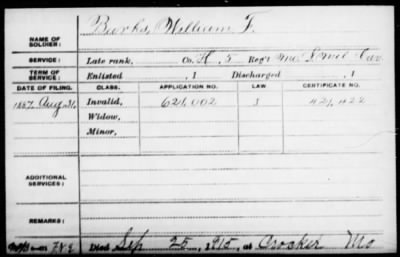 Burks, William F.
NAME OF
SOLDIER:
SERVICE: Late rank, Co. H, 5 Reg't Mo. S. Mil. Cav.
TERM OF
SERVICE: Enlisted , 1 Discharged , 1
DATE OF FILING. CLASS. APPLICATION NO. LAW CERTIFICATE NO.
1887, Aug. 31, Invalid, 621,002 J 421,422
Widow,
Minor,
ADDITIONAL
SERVICES:
REMARKS:
Died Sep 25, 1915, at Crocker Mo